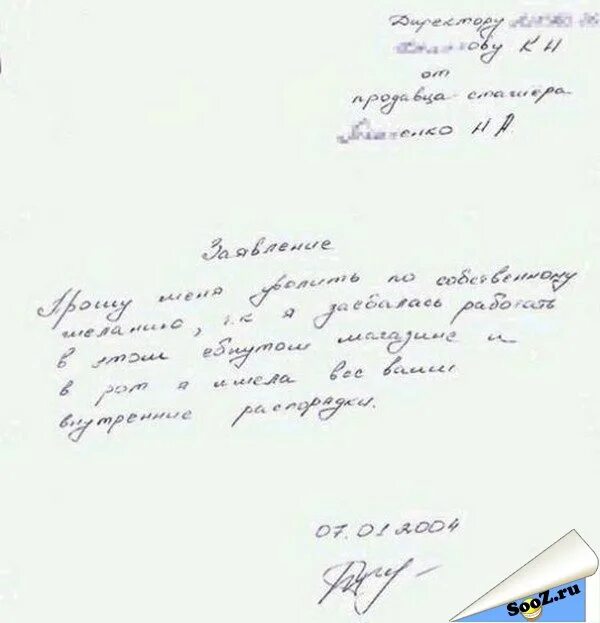 Директору
ову К Н
от
продавца-стажёра
енко Н А.
Заявление
Прошу меня уволить по собственному
желанию, т.к я заебалась работать
в этом ебнутом магазине и
в рот я имела все ваши
внутренние распорядки.
07.01.2004
SooZ.ru